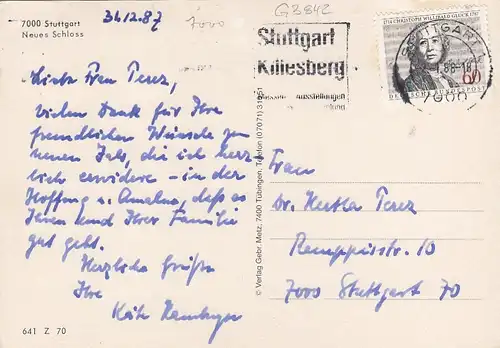 7000 Stuttgart
Neues Schloss
31.12.87
7000
G3842
Liebe Frau Perez,
vielen Dank für Ihre
freundlichen Wünsche zum
neuen Jahr, die ich herz-
lich erwidere - in der
Hoffnung u. Annahme, daß es
Ihnen und Ihrer Familie
gut geht.
Herzliche Grüße
Ihre
Käte Hamburger
641 Z 70
© Verlag Gebr. Metz, 7400 Tübingen, Telefon (07071) 31951
Stuttgart
Killesberg
ausstellungen
1714 CHRISTOPH WILLIBALD GLUCK 1787
60
DEUTSCHE BUNDESPOST
STUTTGART 1
88-18
7000
Frau
Dr. Hertha Perez
Remppisstr. 10
7000 Stuttgart 70